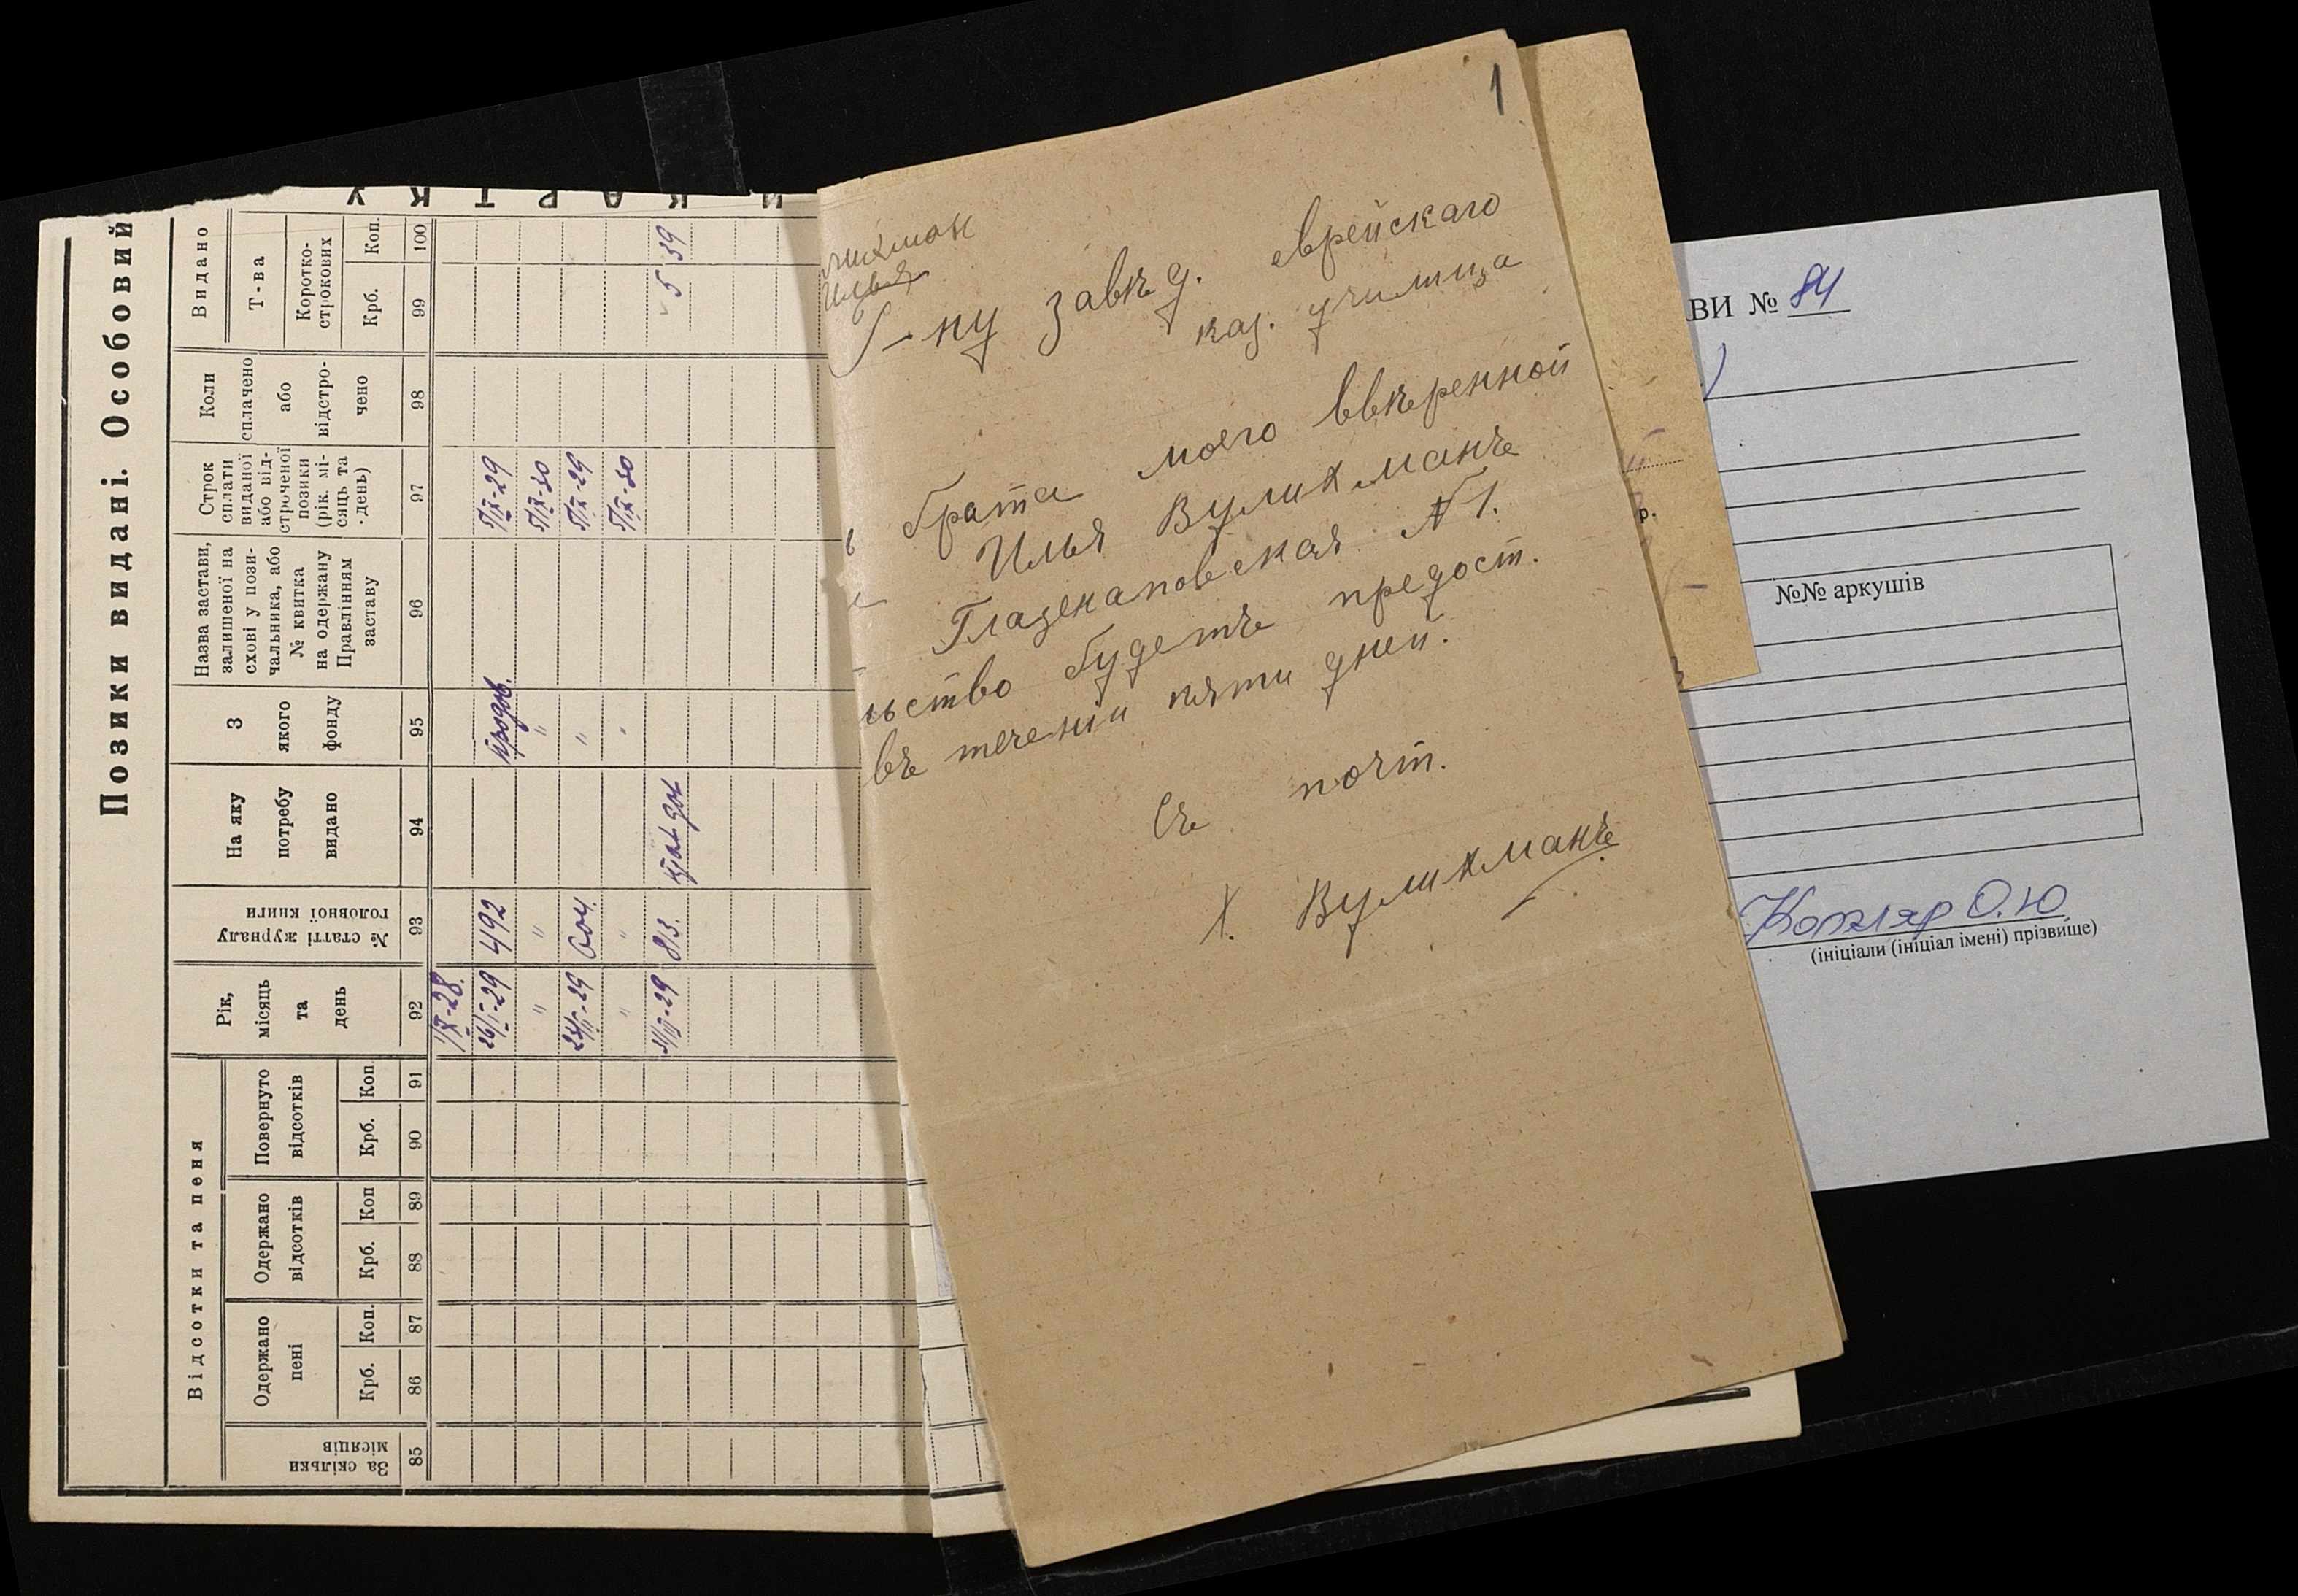 Позики видані. Особовий
И КАРТКУ
Відсотки та пеня
Видано
За скільки
місяців
Одержано
пені
Одержано
відсотків
Повернуто
відсотків
Рік,
місяць
та
день
№ статті журналу
головної книги
На яку
потребу
видано
З
якого
фонду
Назва застави,
залишеної на
схові у пози-
чальника, або
№ квитка
на одержану
Правлінням
заставу
Строк
сплати
виданої
або від-
строченої
позики
(рік. мі-
сяць та
день)
Коли
сплачено
або
відстро-
чено
Т-ва
Коротко-
строкових
Крб. Коп. Крб. Коп Крб. Коп Крб. Коп.
85 86 87 88 89 90 91 92 93 94 95 96 97 98 99 100
1/X-28.
26/I-29 492 продов. 5/IX-29
" " " 5/IX-30
604. " 5/IX-29
" " " 5/IX-30
813. 5 39
1
лихман
Илья
Г-ну завѣд. еврейскаго
каз. училища
брата моего ввѣренной
Илья Вулихманъ
Глазенаповская №1.
льство будетъ предост.
въ теченіи пяти дней.
Съ почт.
Х. Вулихманъ
ВИ № 84
р.
№№ аркушів
Котляр О.Ю
(ініціали (ініціал імені) прізвище)